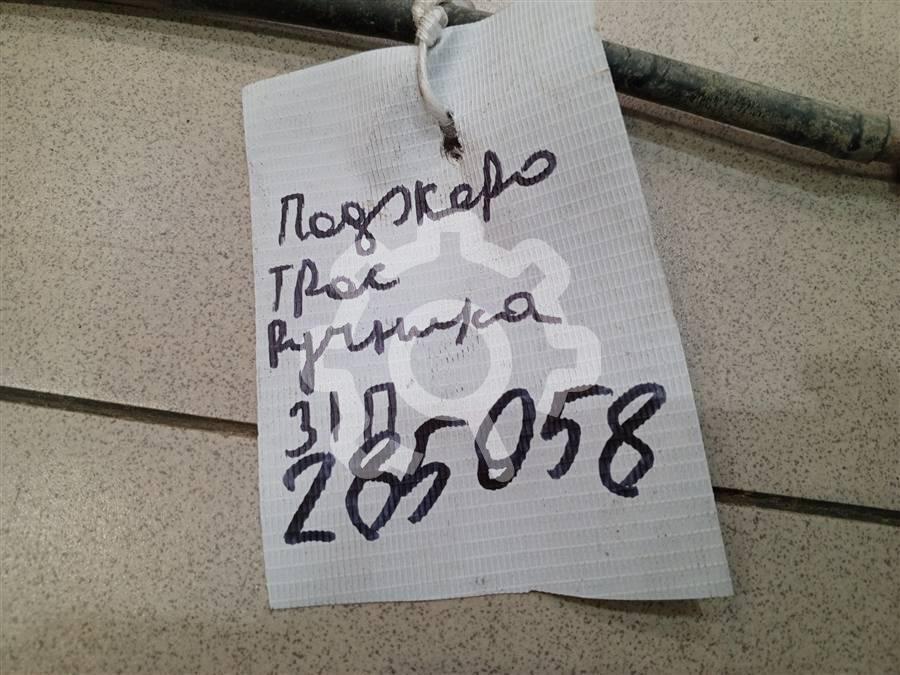 Паджеро
трос
ручника
З/П
285058